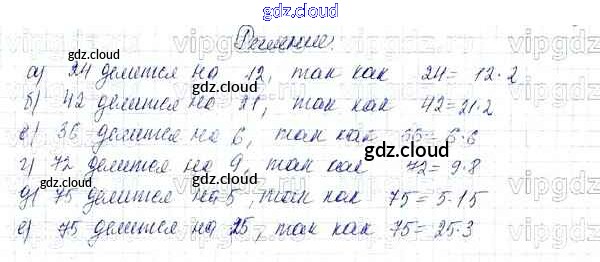 gdz.cloud
gdz.cloud
Решение:
а) 24 делится на 12, так как 24 = 12·2
gdz.cloud
б) 42 делится на 21, так как 42 = 21·2
в) 36 делится на 6, так как 36 = 6·6
gdz.cloud
gdz.cloud
г) 72 делится на 9, так как 72 = 9·8
gdz.cloud
д) 75 делится на 5, так как 75 = 5·15
е) 75 делится на 25, так как 75 = 25·3
gdz.cloud
vipgdz
vipgdz
vipgdz